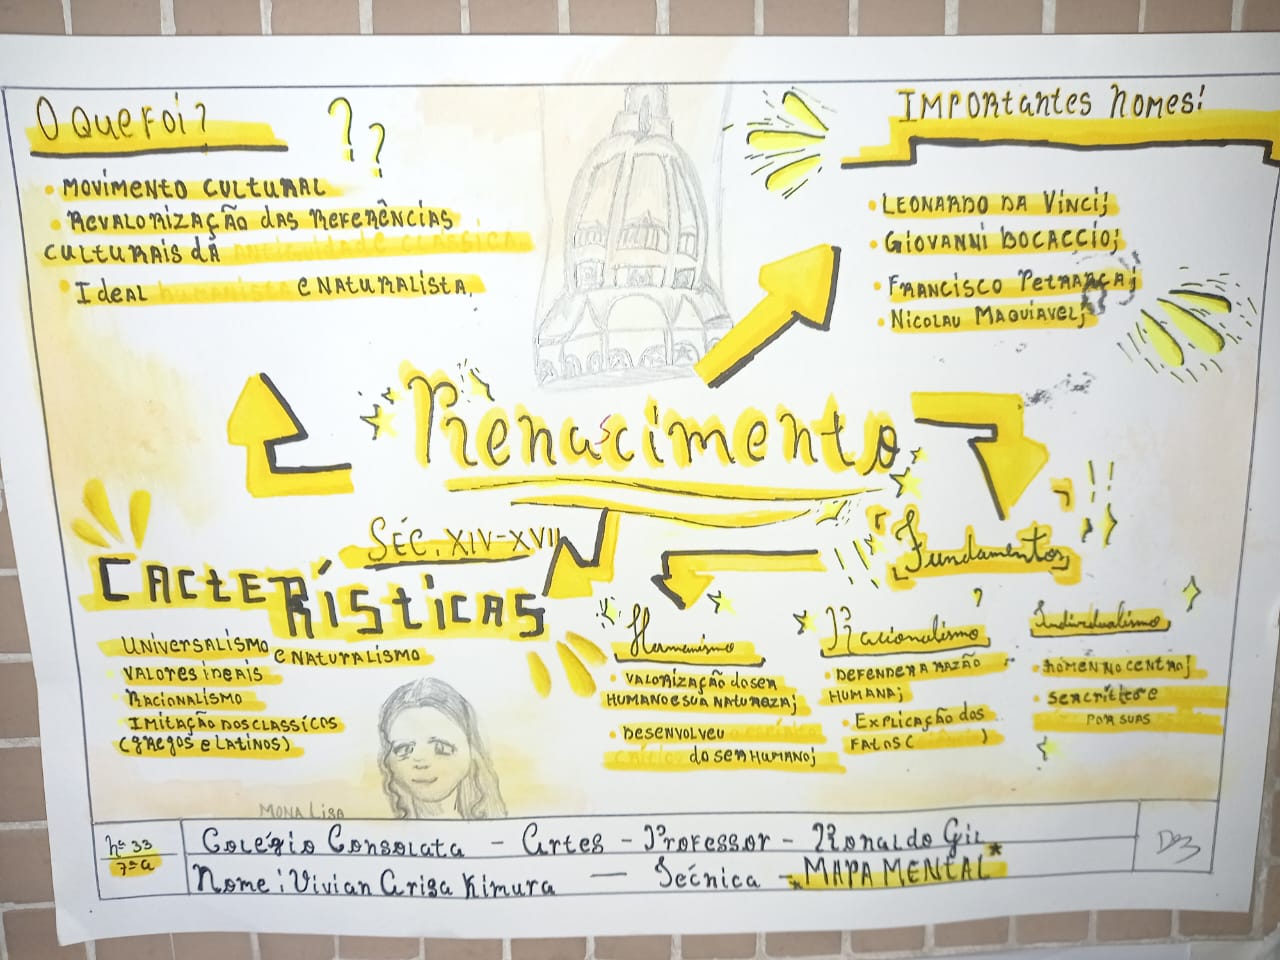 O Que Foi?
??
• MOVIMENTO CULTURAL
• REVALORIZAÇÃO das REFERÊNCIAS
CULTURAIS DA antiguidade clássica
• Ideal humanista e NATURALISTA.
IMPORtantes nomes:
• LEONARDO DA VINCI;
• GIOVANNI BOCACCIO;
• FRANCISCO PETRARCA;
• NICOLAU MAQUIAVEL;
Renascimento
SÉC. XIV-XVII
CACTERÍSTICAS
UNIVERSALISMO
e NATURALISMO
VALORES IDEAIS
RACIONALISMO
IMITAÇÃO DOS CLASSICOS
(gregos e LATINOS)
MONA LISA
"Fundamentos"
Humanismo
• VALORIZAÇÃO do SER
HUMANO E SUA NATUREZA;
• DESENVOLVEU o espírito
crítico do SER HUMANO;
Racionalismo
• DEFENDER A RAZÃO
HUMANA;
• EXPLICAÇÃO dos
FATOS( )
Individualismo
• HOMEM NO CENTRO;
• SER CRÍTICO E
POR SUAS
nº 33
7º a
Colégio Consolata - Artes - Professor - Ronaldo Gil
Nome: Vivian Arisa Kimura — Técnica - *MAPA MENTAL*